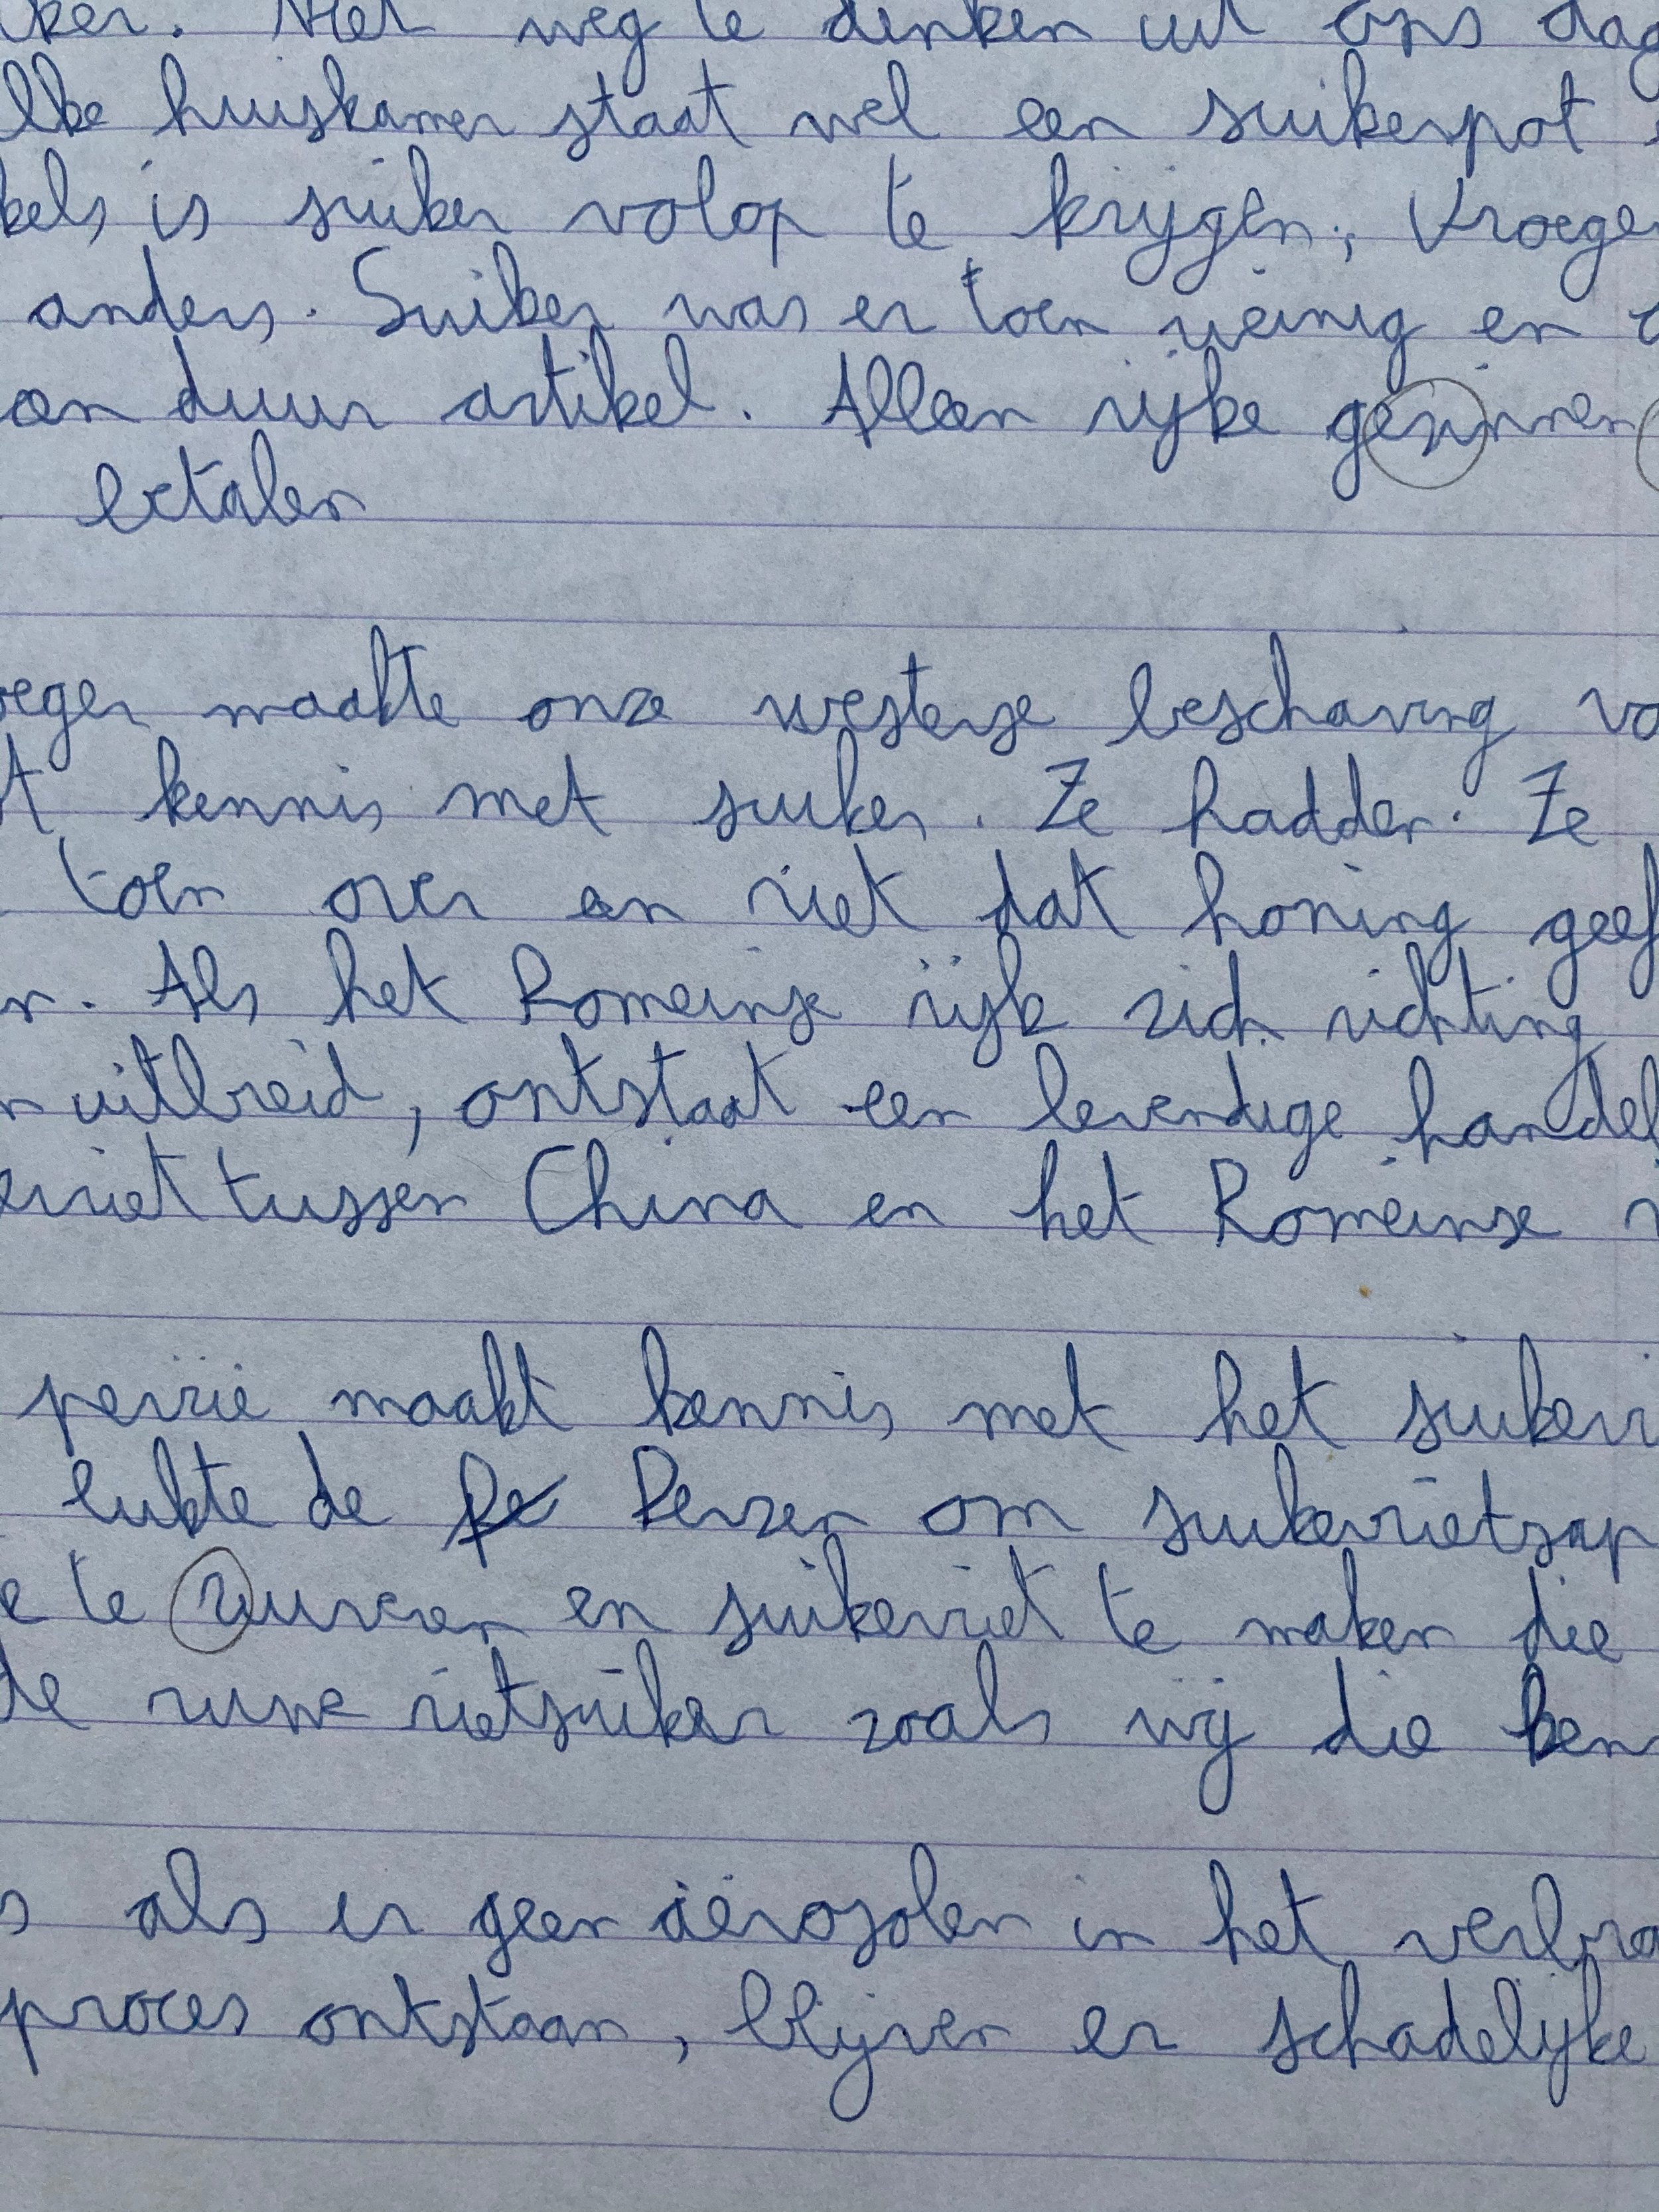 ker. Niet weg te denken uit ons dag
lke huiskamer staat wel een suikerpot
kels is suiker volop te krijgen, Vroeger
anders. Suiker was er toen weinig en
een duur artikel. Alleen rijke gezinnen
betalen
oeger maakte onze westerse beschaving vo
t kennis met suiker. Ze hadden. Ze
toen over een riet dat honing geef
n. Als het Romeinse rijk zich richting
n uitbreid, ontstaat een levendige handel
erriet tussen China en het Romeinse
perzië maakt kennis met het suikerri
lukte de Perzen om suikerrietsap
e te zuiveren en suikerriet te maken die
de ruwe rietsuiker zoals wij die ken
s als er geen aërosolen in het verbra
proces ontstaan, blijven er schadelijke